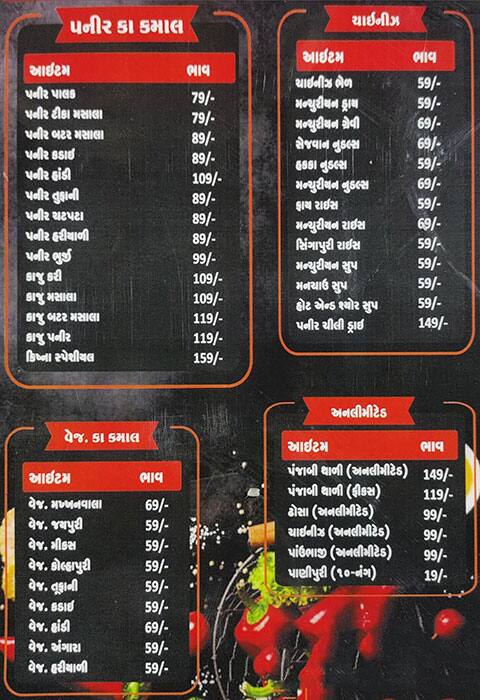 પનીર કા કમાલ
આઈટમ ભાવ
પનીર પાલક 79/-
પનીર ટીકા મસાલા 79/-
પનીર બટર મસાલા 89/-
પનીર કડાઈ 89/-
પનીર હાંડી 109/-
પનીર તુફાની 89/-
પનીર ચટપટા 89/-
પનીર હરીયાળી 89/-
પનીર ભુર્જી 99/-
કાજુ કરી 109/-
કાજુ મસાલા 109/-
કાજુ બટર મસાલા 119/-
કાજુ પનીર 119/-
ક્રિષ્ના સ્પેશીયલ 159/-
ચાઈનીઝ
આઈટમ ભાવ
ચાઈનીઝ ભેળ 59/-
મન્ચુરીયન ડ્રાય 59/-
મન્ચુરીયન ગ્રેવી 69/-
સેજવાન નુડલ્સ 69/-
હકકા નુડલ્સ 59/-
મન્ચુરીયન નુડલ્સ 69/-
ફ્રાય રાઈસ 59/-
મન્ચુરીયન રાઈસ 69/-
સિંગાપુરી રાઈસ 59/-
મન્ચુરીયન સુપ 59/-
મનચાઉ સુપ 59/-
હોટ એન્ડ શ્યોર સુપ 59/-
પનીર ચીલી ડ્રાઈ 149/-
વેજ. કા કમાલ
આઈટમ ભાવ
વેજ. મખ્ખનવાલા 69/-
વેજ. જયપુરી 59/-
વેજ. મીકસ 59/-
વેજ. કોલ્હાપુરી 59/-
વેજ. તુફાની 59/-
વેજ. કડાઈ 59/-
વેજ. હાંડી 69/-
વેજ. અંગારા 59/-
વેજ. હરીયાળી 59/-
અનલીમીટેડ
આઈટમ ભાવ
પંજાબી થાળી (અનલીમીટેડ) 149/-
પંજાબી થાળી (ફીકસ) 119/-
ઢોસા (અનલીમીટેડ) 99/-
ચાઈનીઝ (અનલીમીટેડ) 99/-
પાંઉભાજી (અનલીમીટેડ) 99/-
પાણીપુરી (૧૦-નંગ) 19/-